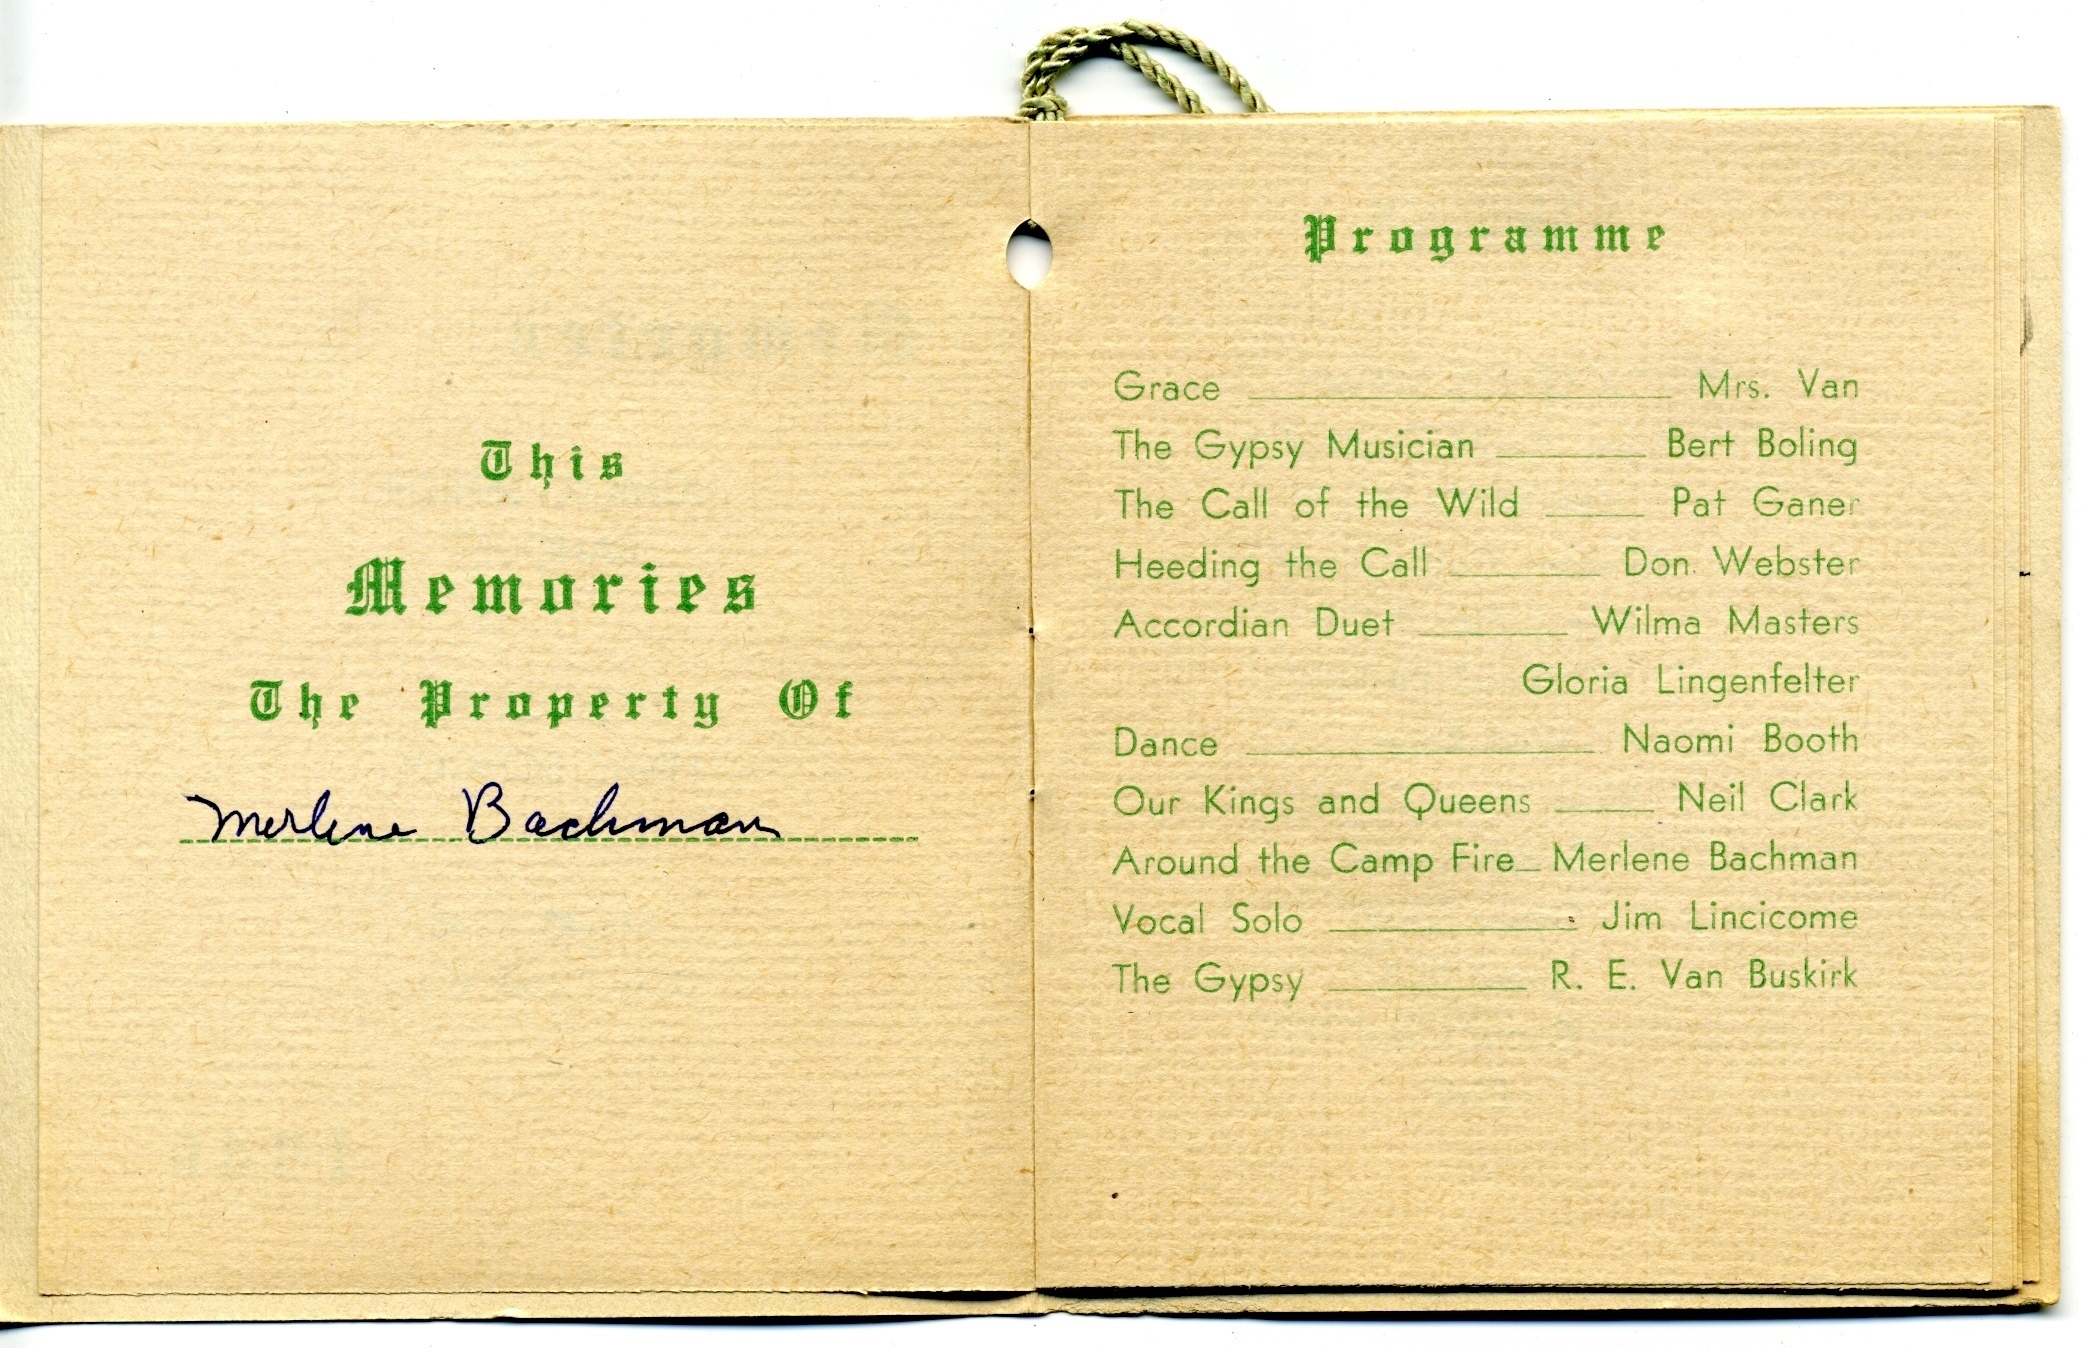 This
Memories
The Property Of
Merlene Bachman
Programme
Grace Mrs. Van
The Gypsy Musician Bert Boling
The Call of the Wild Pat Ganer
Heeding the Call Don Webster
Accordian Duet Wilma Masters
Gloria Lingenfelter
Dance Naomi Booth
Our Kings and Queens Neil Clark
Around the Camp Fire Merlene Bachman
Vocal Solo Jim Lincicome
The Gypsy R. E. Van Buskirk